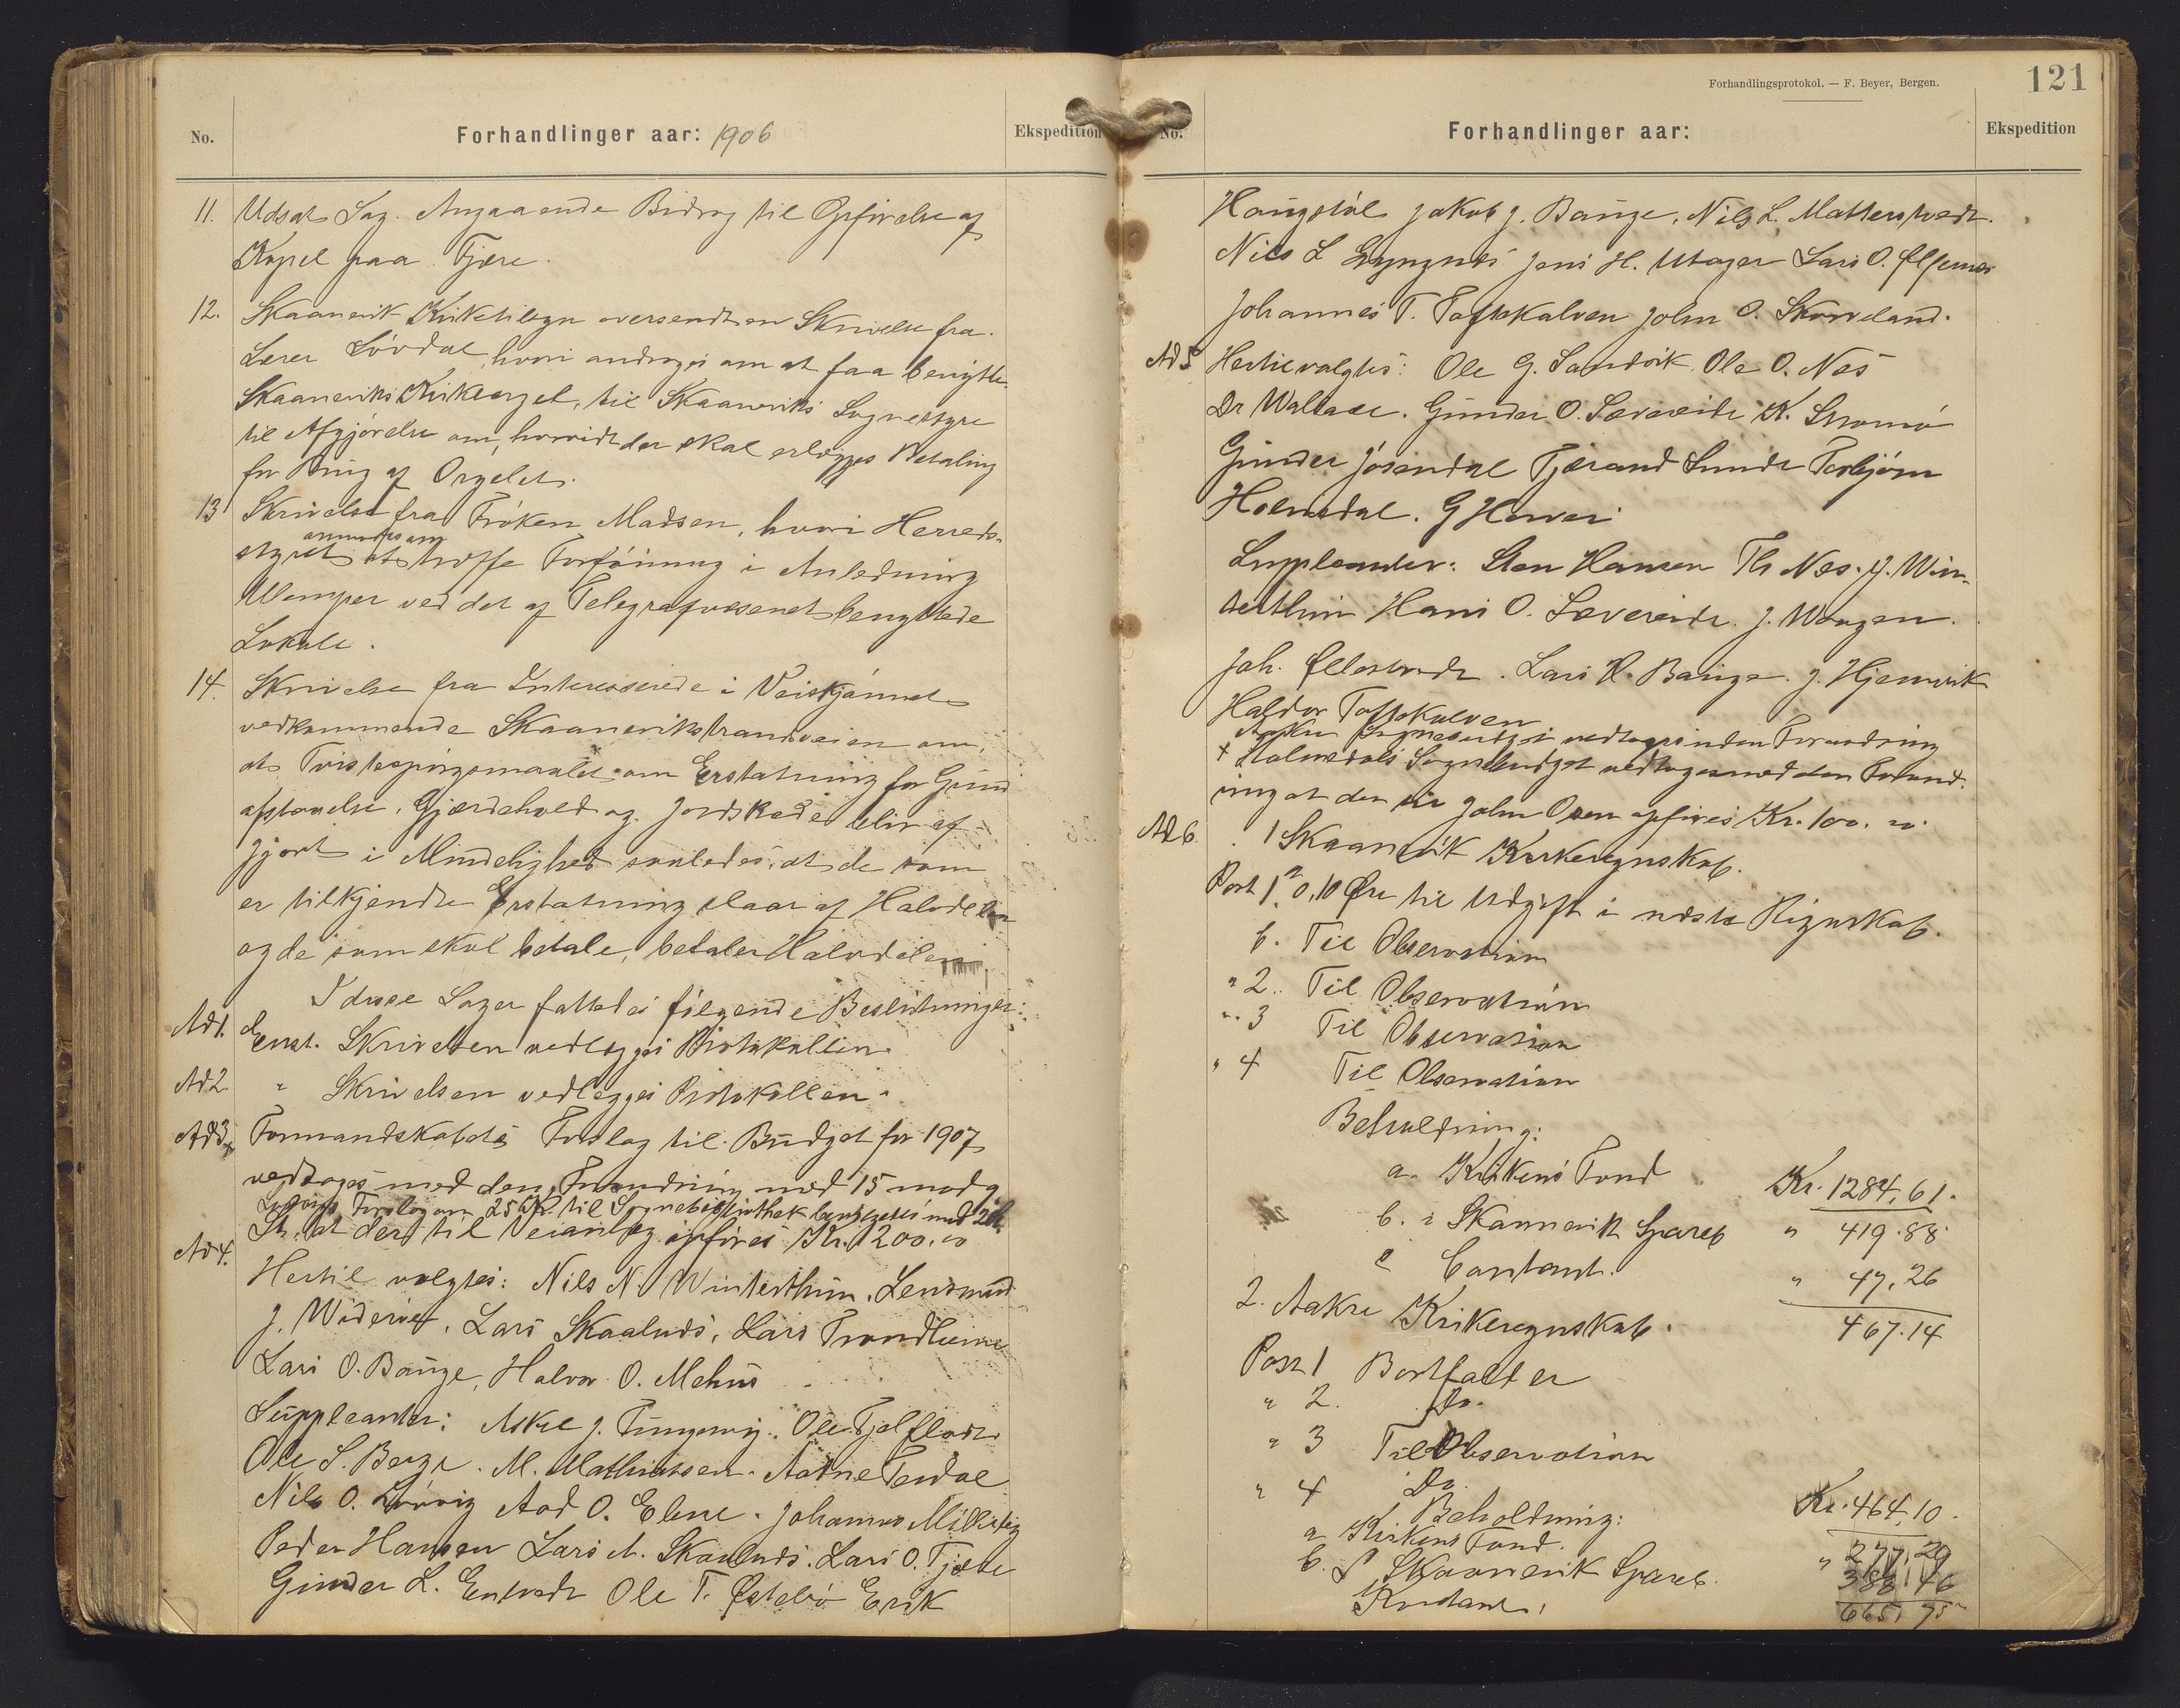 No.
Forhandlinger aar: 1906
Ekspedition
11. Udsat Sag. Angaaende Bidrag til Opførelse af
Kapel paa Fjære.
12. Skaanevik Kirketilsyn oversendt en Skrivelse fra
Lærer Løvdal, hvori andrages om at faa benytte
Skaaneviks Kirkeorgel, til Skaaneviks Sognestyre
til Afgjørelse om, hvorvidt der skal erlægges Betaling
for Brug af Orgelet.
13 Skrivelse fra Frøken Madsen, hvori Herreds-
anmodes om
styret at træffe Forføining i Anledning
Ulemper ved det af Telegrafvæsenet benyttede
Lokale.
14. Skrivelse fra Interesserede i Veiskjønnet
vedkommende Skaanevikstrandveien om,
at Tvistespørgsmaalet om Erstatning for Grund
afstaaelse, Gjærdehold og Jordskade bliv af
gjort i Mindelighed saaledes, at de som
er tilkjendte Erstatning slaar af Halvdelen
og de som skal betale, betaler Halvdelen
I disse Sager fattedes følgende Beslutninger:
Ad 1. Enst. Skrivelsen vedlægges Protokollen.
Ad 2. " Skrivelsen vedlegges Protokollen.
Ad 3 x Formandskabets Forslag til Budget for 1907
vedtoges med den Forandring med 15 mod 9
Forslag om 25 Kr. til Sognebibliothek
St. at der til Veianlæg opføres Kr. 1200.00
Ad 4. Hertil valgtes: Nils N. Winterthun, Lensmand
J. Widerøe, Lars Skaalnes, Lars Trondheim
Lars O. Bauge, Halvor O. Mehus
Suppleanter: Askil J. Tungesvig. Ole Fjelflaadt
Ole S. Berge. M. Mathiassen. Aadne Tesdal
Nils O. Aad O. Ebne. Johannes Milje
Peder Hansen Lars A. Skaalnes. Lars O. Fjære
Gunder L. Entvedt Ole T. Østebø Erik
Forhandlingsprotokol. — F. Beyer, Bergen.
121
No.
Forhandlinger aar:
Ekspedition
Haugstøl Jakob J. Bauge, Nils L. Matterstvedt.
Nils L Lyngnes Jens H. Utager Lars O. Ølfernes
Johannes T. Toftekalven John O. Skorveland.
Ad 5 Hertil valgtes: Ole G. Sandvik Ole O. Nes
Dr Wallace. Gunder O. Sævereide K. Strømø
Gunder Josendal Tjerand Sunde Torbjørn
Holmedal. G Hervei
Suppleanter: Sten Hansen Th Næs. J. Win-
terthun Hans O. Sævereide. J. Waagen.
Joh. Øllestvedt. Lars H. Bauge. J. Hjemvik
Haldor Toftekalven
Aakre Sognebudget vedtoges uden Forandring
x Holmedals Sognebudget vedtoges med den Forand-
ring at der til John Osen opføres Kr. 100.00
Ad 6. 1 Skaanevik Kirkeregnskab.
Post 1. a 0,10 Øre til Udgift i næste Regnskab.
b. Til Observation
" 2. Til Observation
" 3 Til Observation
" 4 Til Observation
Beholdning:
a. Kirkens Fond Kr. 1284,61.
b. i Skaanevik Spareb " 419.88
c Contant. " 47,26
467.14
2. Aakre Kirkeregnskab.
Post 1 Bortfalder
" 2. Do.
" 3 Til Observation
" 4 Do.
Beholdning:
a Kirkens Fond. Kr. 464,10.
b. I Skaanevik Spareb. " 277,29
Kontant, 388 46
665,75